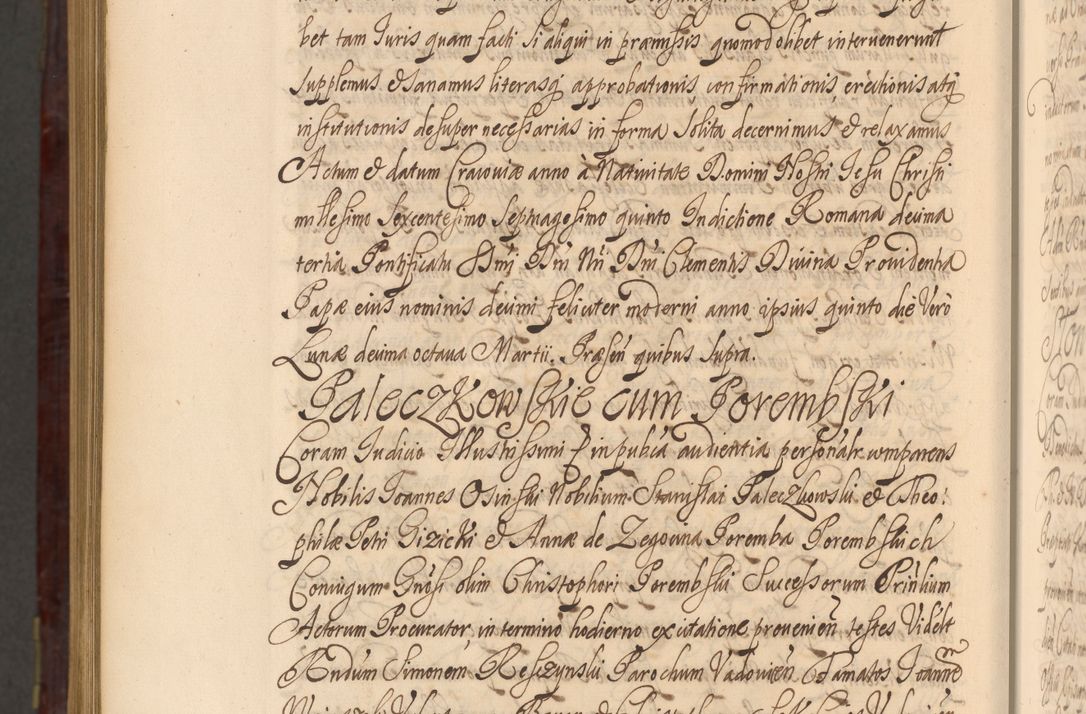 bet tam Juris quam facti si aliqui in præmissis quomodolibet intervenerunt
supplemus et sanamus literasq approbationis confirmationis, erectionis atq
institutionis desuper necessarias in forma solita decernimus et relaxamus
Actum et datum Cracoviæ anno à Nativitate Domini Nostri Jesu Christi
millesimo sexcentesimo septuagesimo quinto Indictione Romana decima
tertia Pontificatu SSmi Dni Nri Dni Clementis Divina Providentia
Papæ eius nominis decimi feliciter moderni anno ipsius quinto die Vero
Lunæ decima octava Martii. Præsen quibus supra.
Paleczkowskie cum Porembski
Coram Judicio Illustrissimi in publica audientia personalr comparens
Nobilis Joannes Osinski Nobilium Stanislai Paleczkowski et Theo:
philæ Petri Gizicki et Annæ de Zegocina Poremba Porembskich
Coniugum Gnosi olim Christophori Porembski Successorum Prinlium
Actorum Procurator, in termino hodierno ex citatione provenien testes Videlt
Rndum Simonem Reszczynski Parochum Vadovicen Famatos Joannem